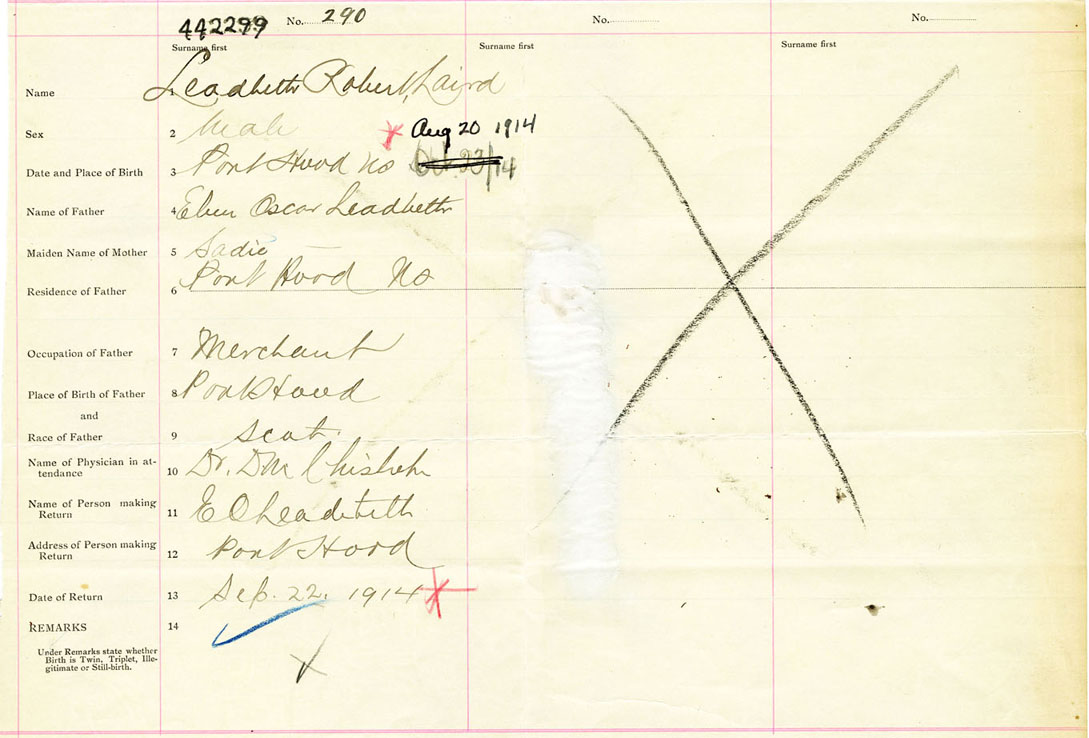 442299 No. 290 No. No.
Surname first Surname first Surname first
Name 1 Leadbeth Robert Laird
Sex 2 Male Aug 20 1914
Date and Place of Birth 3 Port Hood No Oct. 23/14
Name of Father 4 Eben Oscar Leadbeth
Maiden Name of Mother 5 Sadie
Residence of Father 6 Port Hood No
Occupation of Father 7 Merchant
Place of Birth of Father 8 Port Hood
and
Race of Father 9 Scot.
Name of Physician in at-
tendance 10 Dr. D Mc Chisholm
Name of Person making
Return 11 E O Leadbeth
Address of Person making
Return 12 Port Hood
Date of Return 13 Sep. 22. 1914
REMARKS 14
Under Remarks state whether
Birth is Twin, Triplet, Ille-
gitimate or Still-birth.